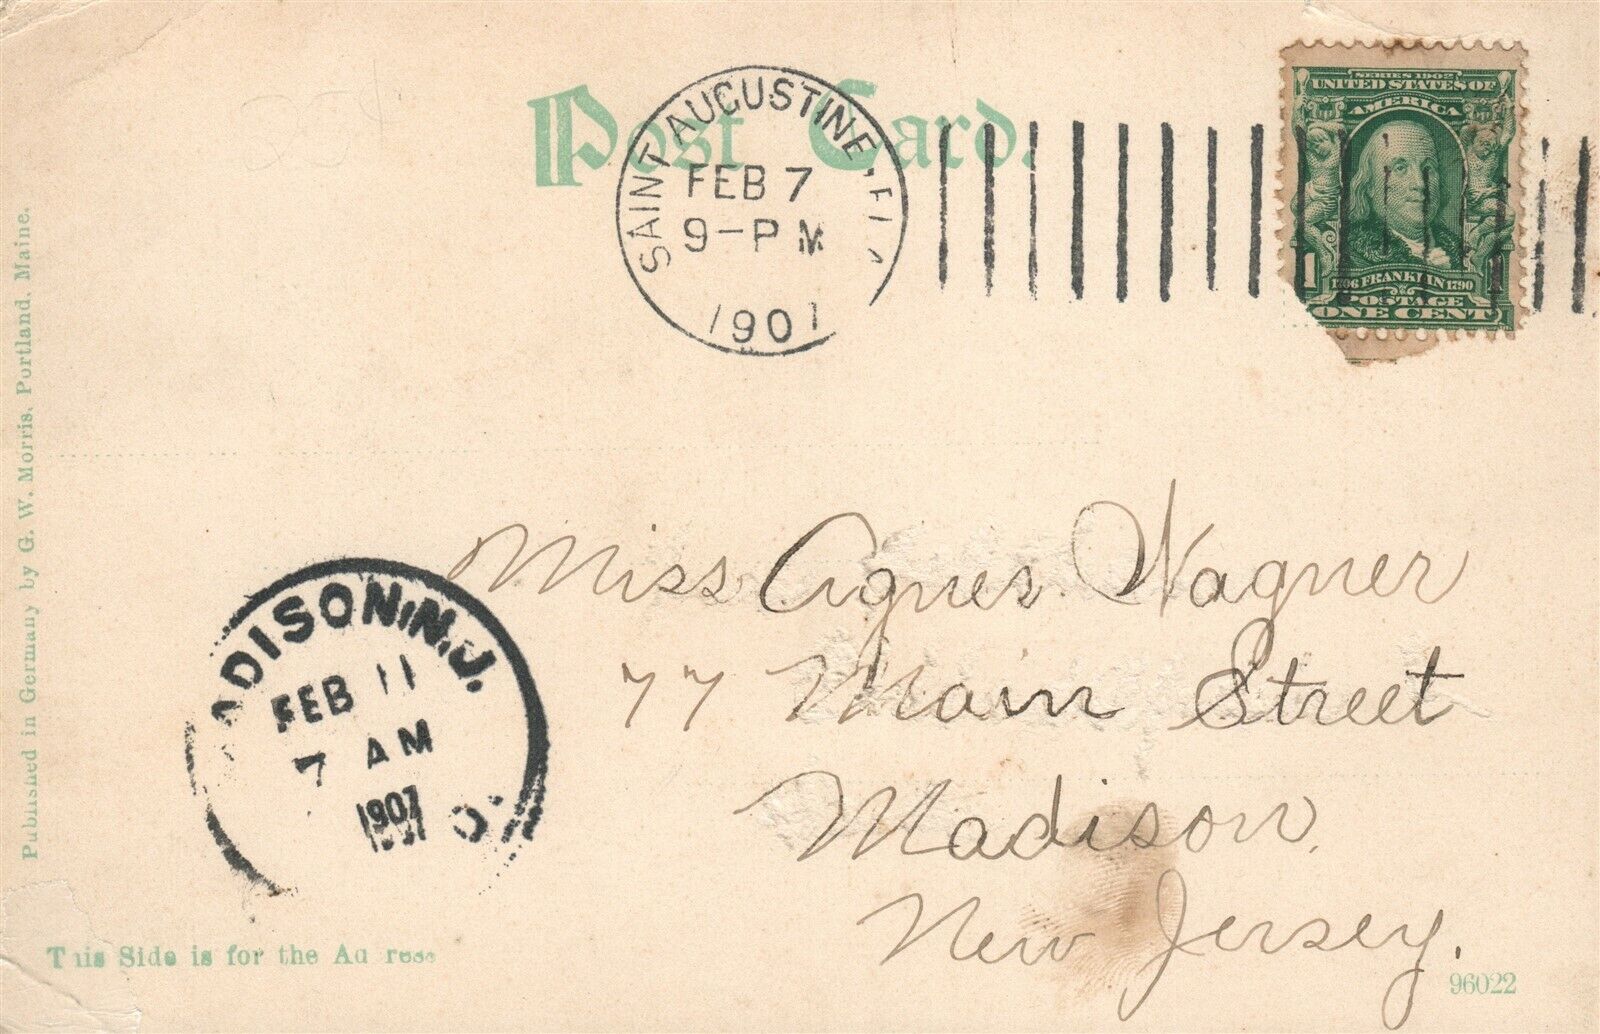 Post Card.
SAINT AUGUSTINE, FLA
FEB 7
9-PM
1907
SERIES 1902
UNITED STATES OF
AMERICA
1 1
1706 FRANKLIN 1790
POSTAGE
ONE CENT
Published in Germany by G. W. Morris, Portland, Maine.
Miss Agnes Wagner
77 Main Street
Madison,
New Jersey.
ADISON, N.J.
FEB 11
7 AM
1907
This Side is for the Address
96022